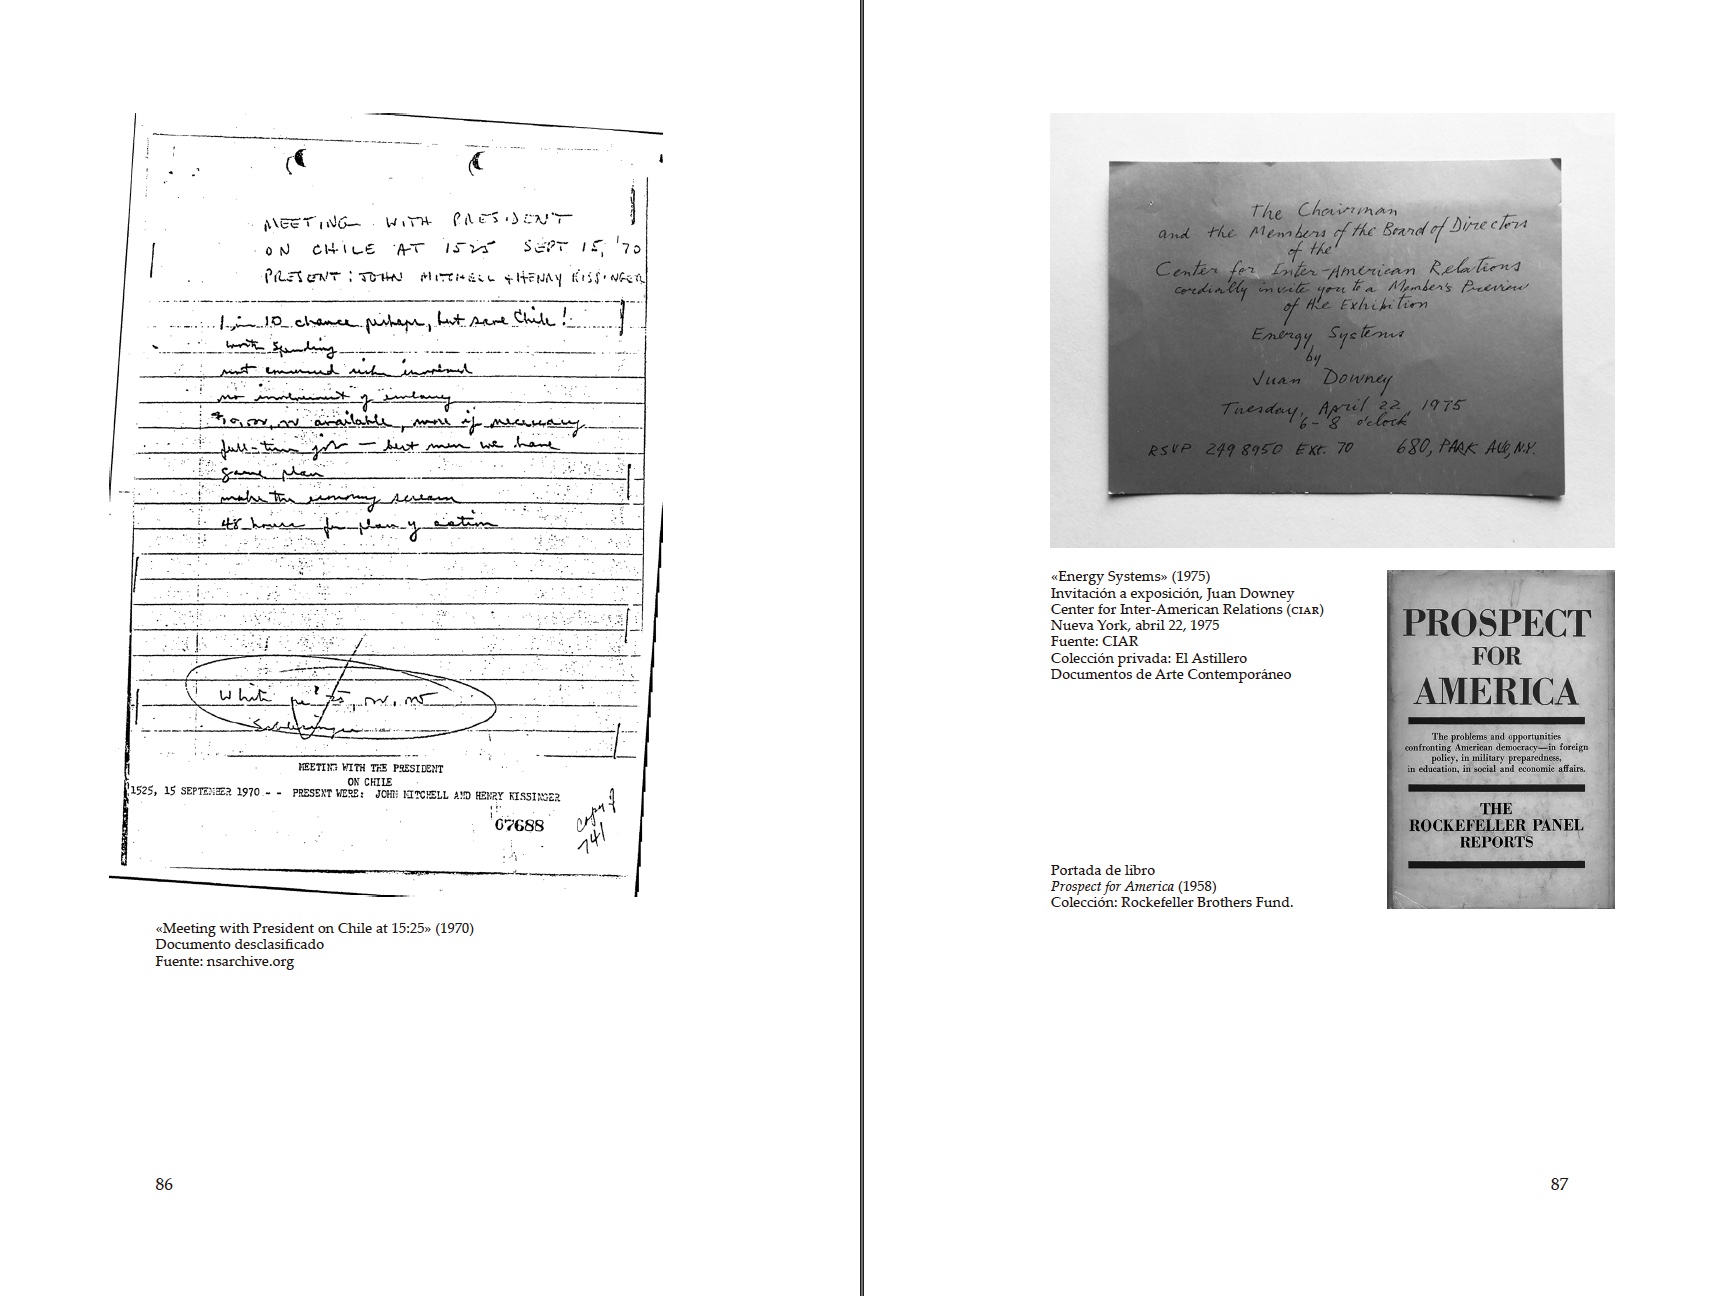 MEETING WITH PRESIDENT
ON CHILE AT 1525 SEPT 15, '70
PRESENT: JOHN MITCHELL + HENRY KISSINGER
1 in 10 chance perhaps, but save Chile!
worth spending
not concerned risks involved
no involvement of embassy
$10,000,000 available, more if necessary
full-time job — best men we have
game plan
make the economy scream
48 hours for plan of action
MEETING WITH THE PRESIDENT
ON CHILE
1525, 15 SEPTEMBER 1970 - - PRESENT WERE: JOHN MITCHELL AND HENRY KISSINGER
07688
copy of
741
«Meeting with President on Chile at 15:25» (1970)
Documento desclasificado
Fuente: nsarchive.org
86
the Chairman
and the Members of the Board of Directors
of the
Center for Inter-American Relations
cordially invite you to a Member's Preview
of the Exhibition
Energy Systems
by
Juan Downey
Tuesday, April 22, 1975
6-8 o'clock
RSVP 249 8950 Ext. 70 680, PARK AVE, N.Y.
«Energy Systems» (1975)
Invitación a exposición, Juan Downey
Center for Inter-American Relations (CIAR)
Nueva York, abril 22, 1975
Fuente: CIAR
Colección privada: El Astillero
Documentos de Arte Contemporáneo
PROSPECT
FOR
AMERICA
The problems and opportunities
confronting American democracy—in foreign
policy, in military preparedness,
in education, in social and economic affairs.
THE
ROCKEFELLER PANEL
REPORTS
Portada de libro
Prospect for America (1958)
Colección: Rockefeller Brothers Fund.
87